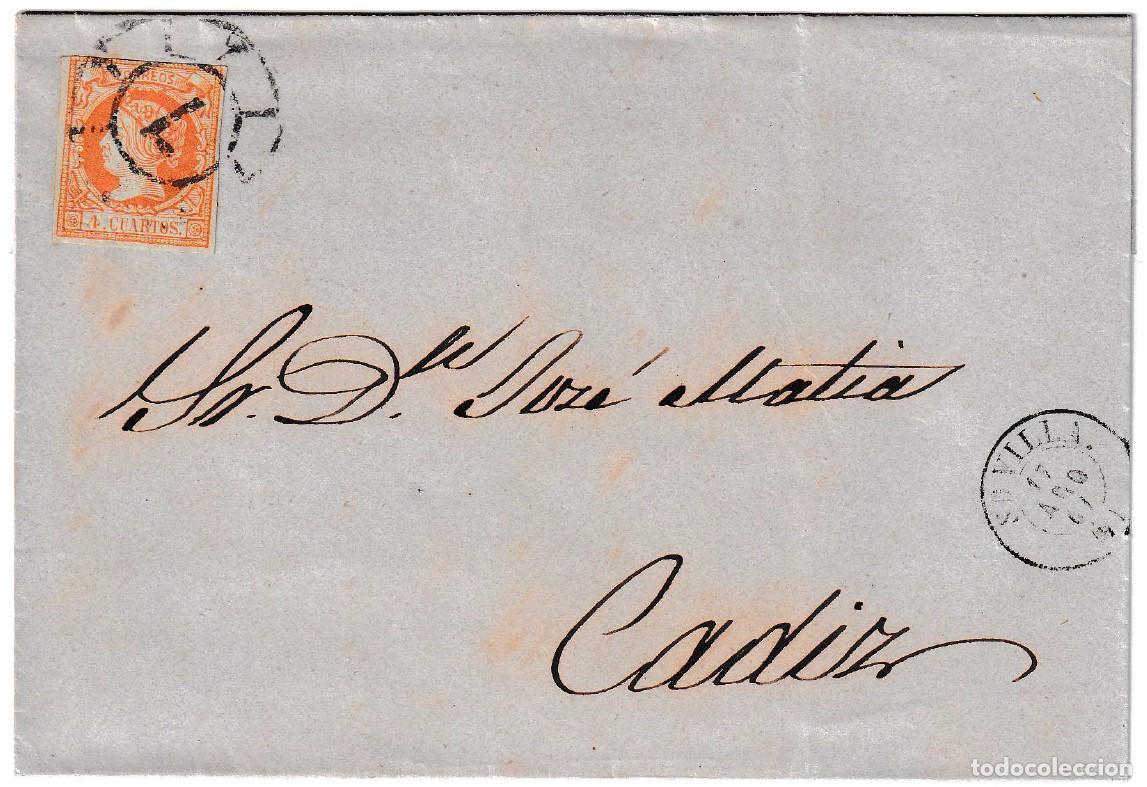 CORREOS
7
4. CUARTOS.
Sr. D.ⁿ José Matia
SEVILLA.
17
AGO
Cadiz
todocoleccion